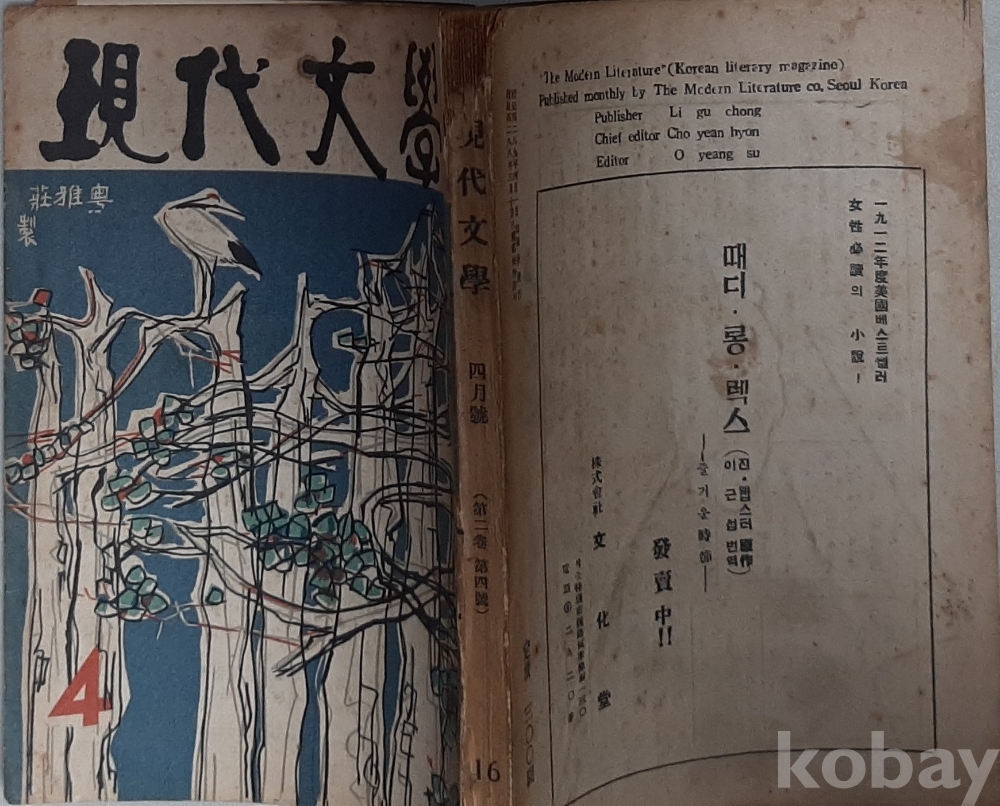 現代文學
粵雅莊
製
4
現代文學 四月號 (第二卷 第四號)
16
"The Modern Literature" (Korean literary magazine)
Published monthly by The Modern Literature co, Seoul Korea
Publisher Li gu chong
Chief editor Cho yean hyon
Editor O yeang su
一九一二年度美國베스트쎌러
女性必讀의 小說!
때디·롱·렉스
(진·웹스터 原作
이근섭 번역)
—즐거운時節—
發賣中!!
株式會社 文化堂
kobay